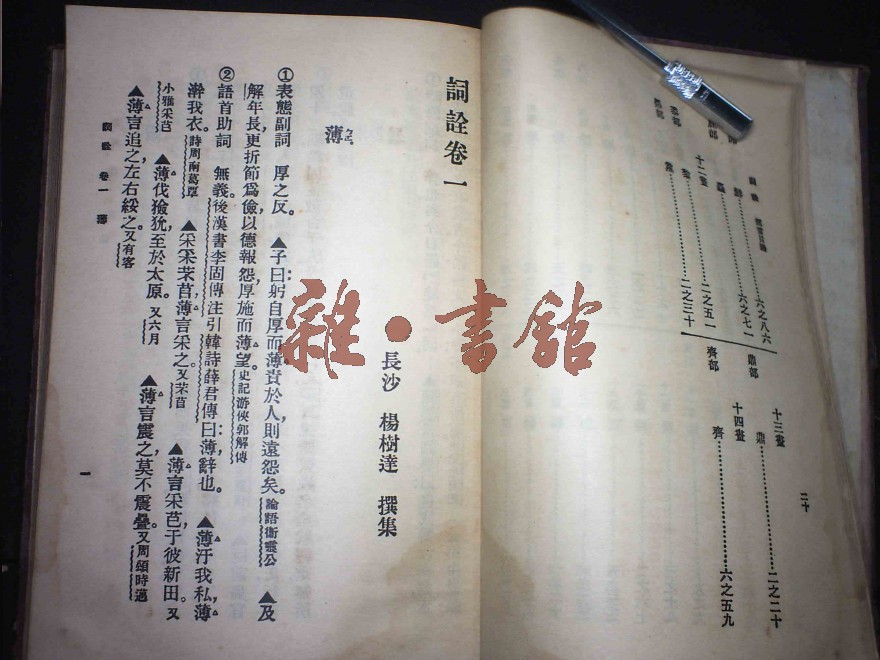 二十
十三畫
鼎部
鼎……二之二十
十四畫
齊部
齊……六之五九
六之八六
六之七一
十二畫
二之五一
二之三十
詞詮卷一
長沙 楊樹達 撰集
薄ㄅㄛˊ
①表態副詞 厚之反。 ▲子曰：躬自厚而薄責於人，則遠怨矣。論語衞靈公 ▲及
解年長，更折節爲儉，以德報怨，厚施而薄望。史記游俠郭解傳
②語首助詞 無義。後漢書李固傳注引韓詩薛君傳曰：薄，辭也。 ▲薄汙我私，薄
澣我衣。詩周南葛覃 ▲采采芣苢，薄言采之。又芣苢 ▲薄言采芑，于彼新田。又
小雅采芑 ▲薄伐玁狁，至於太原。又六月 ▲薄言震之，莫不震疊。又周頌時邁
▲薄言追之，左右綏之。又有客
詞詮 卷一 薄
一
雜·書館